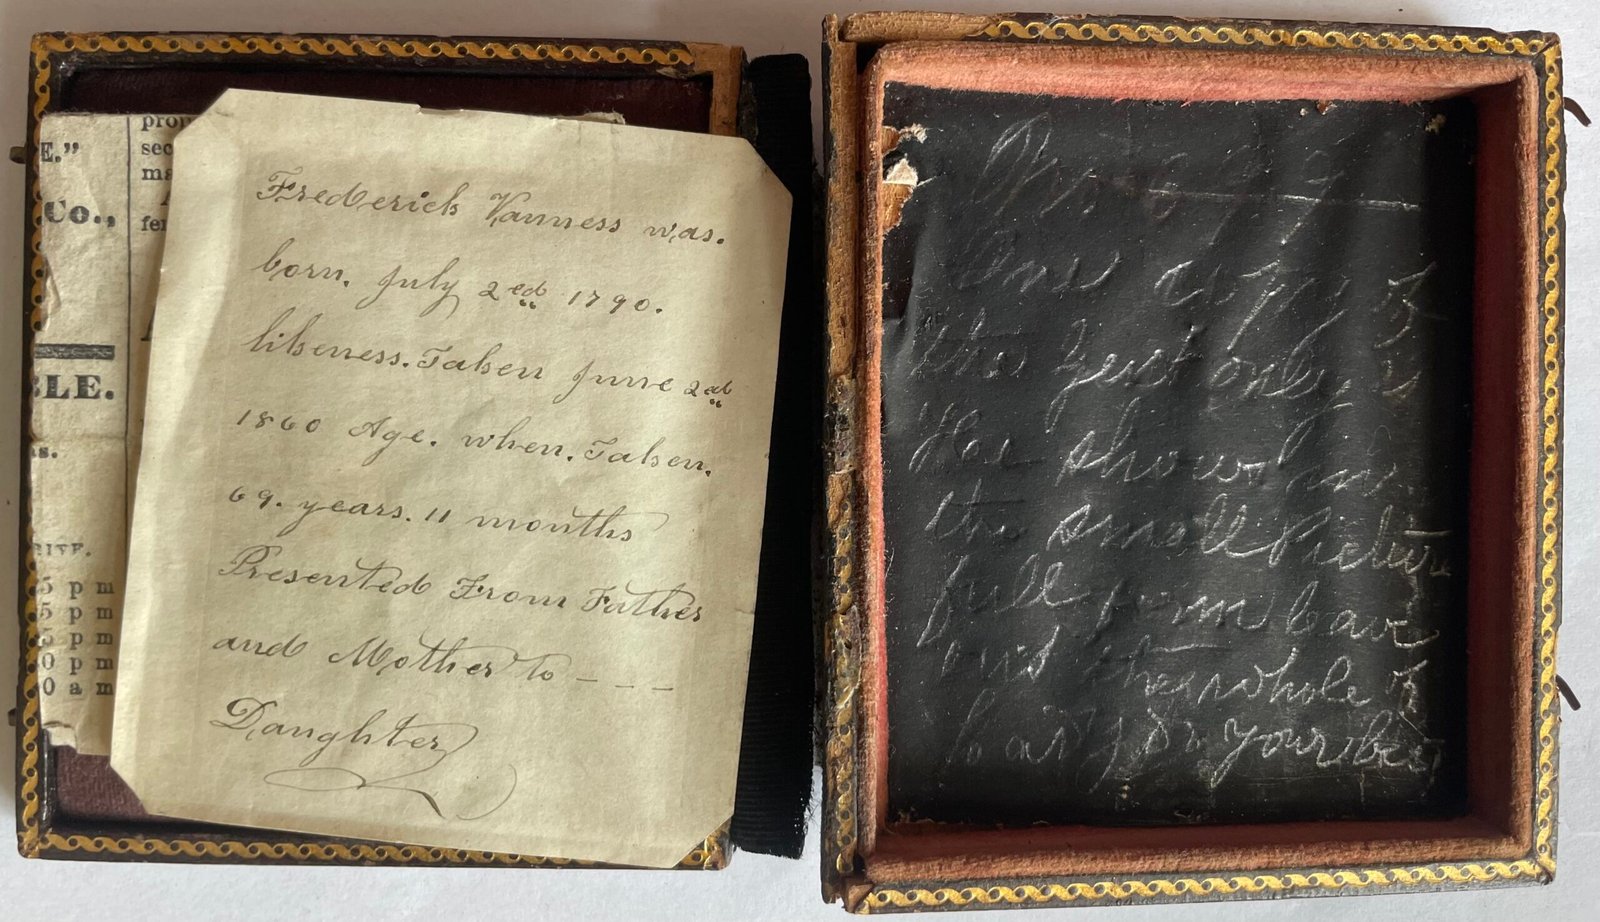 E."
Co.,
BLE.
5 p m
5 p m
5 p m
0 p m
0 a m
prop
sec
ma
fer
Frederick Vanness was.
born. July 2ed 1790.
likeness. Taken June 2ed
1860 Age. when. Taken.
69. years. 11 months
Presented From Father
and Mother to - - -
Daughter
One copy of
the Gent only is
He shows in
the small Picture
full form leave
out the whole of
your best